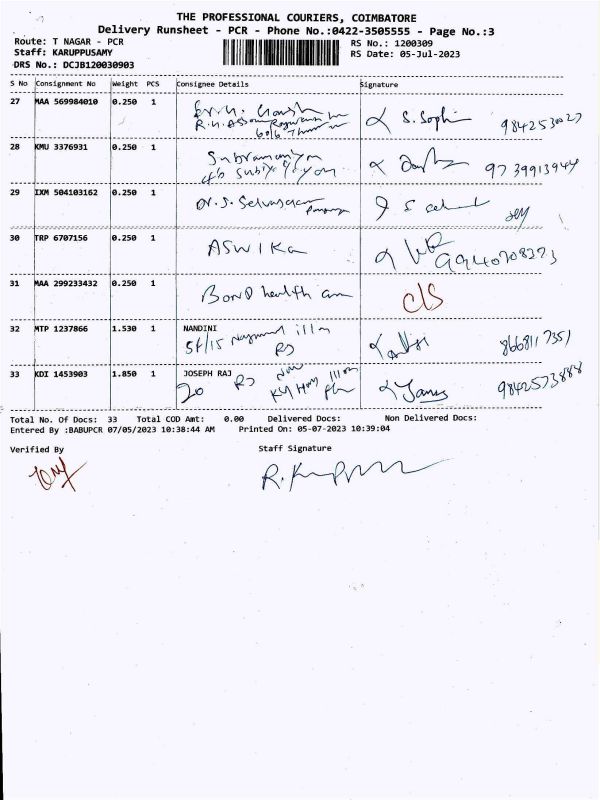 THE PROFESSIONAL COURIERS, COIMBATORE
Delivery Runsheet - PCR - Phone No.:0422-3505555 - Page No.:3
Route: T NAGAR - PCR
RS No.: 1200309
Staff: KARUPPUSAMY
RS Date: 05-Jul-2023
DRS No.: DCJB120030903
S No Consignment No Weight PCS Consignee Details Signature
27 MAA 569984010 0.250 1
S. Sophi 9842530027
28 KMU 3376931 0.250 1 Subramaniyan
9739913944
29 IXM 504103162 0.250 1 Dr. S. Selvarajan
30 TRP 6707156 0.250 1 ASWIKA
9940708273
31 MAA 299233432 0.250 1 Bond health care C/S
32 MTP 1237866 1.530 1 NANDINI
51/15
RS
8668117351
33 KDI 1453903 1.850 1 JOSEPH RAJ
20 RS
9842573888
Total No. Of Docs: 33 Total COD Amt: 0.00 Delivered Docs: Non Delivered Docs:
Entered By :BABUPCR 07/05/2023 10:38:44 AM Printed On: 05-07-2023 10:39:04
Verified By Staff Signature